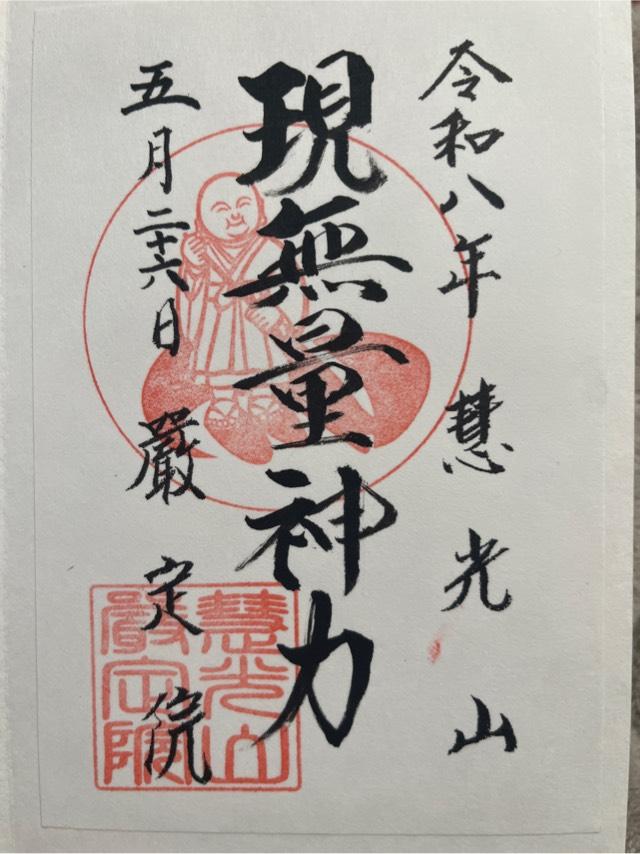 令和八年 慧光山
現無量神力
五月二十六日 嚴定院
慧光山
嚴定院